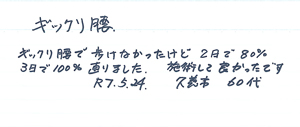 ギックリ腰.
ギックリ腰で歩けなかったけど 2日で80%
3日で100% 直りました. 施術して良かったです
R7.5.24. 久慈市 60代